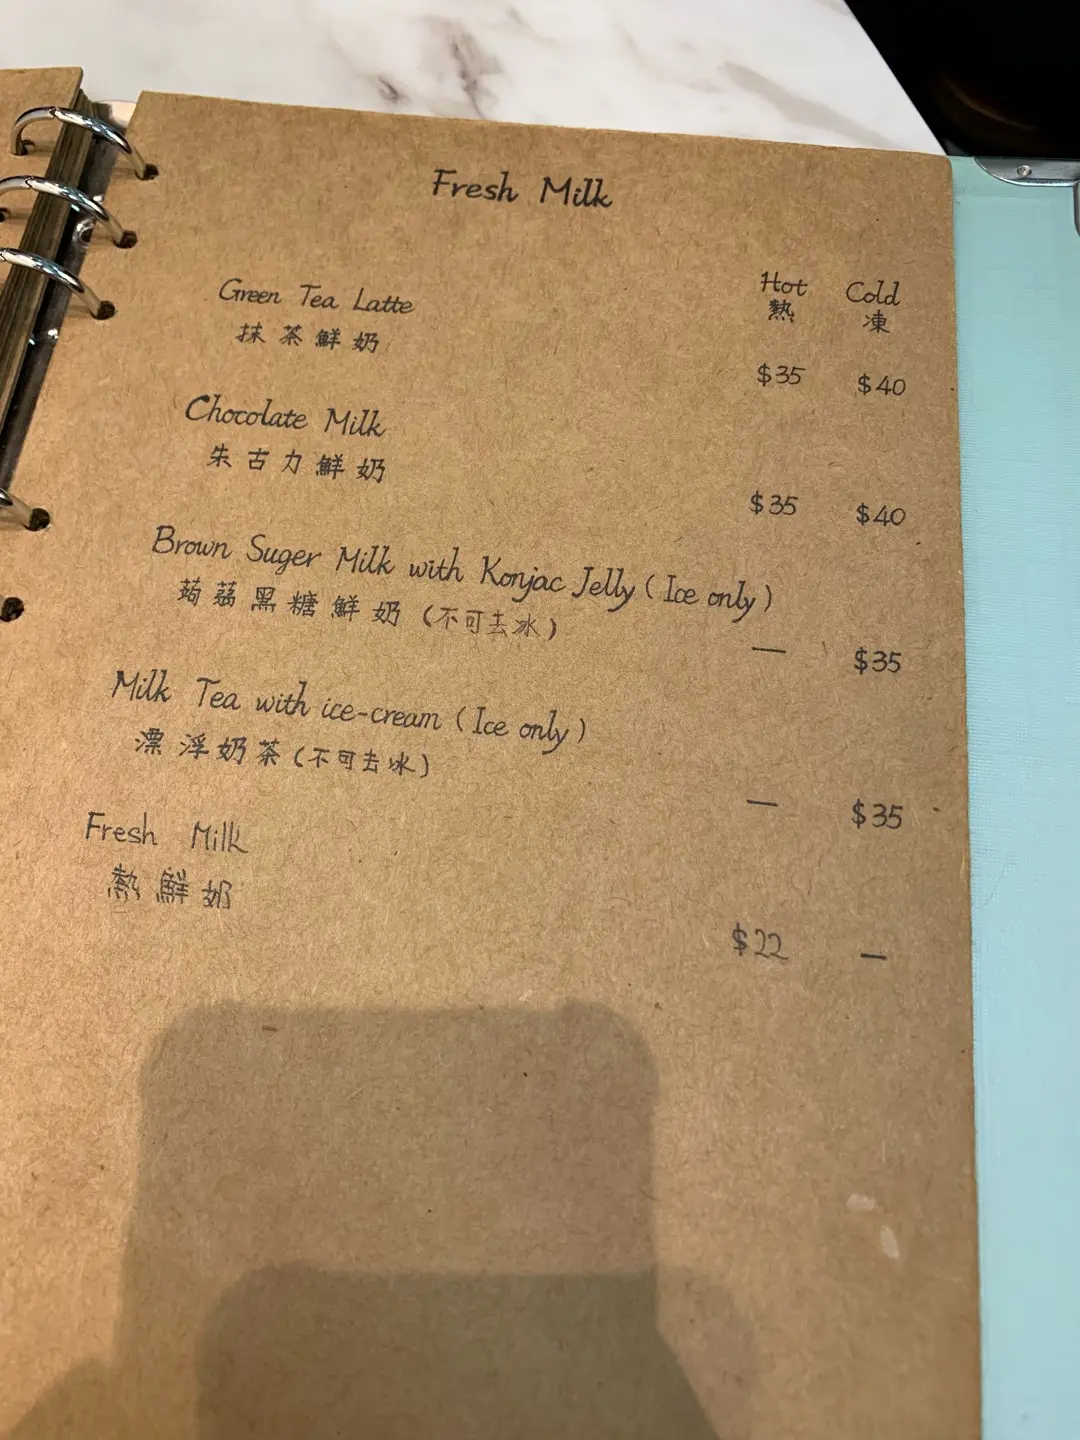 Fresh Milk
Hot Cold
熱 凍
Green Tea Latte
抹茶鮮奶
$35 $40
Chocolate Milk
朱古力鮮奶
$35 $40
Brown Suger Milk with Konjac Jelly (Ice only)
蒟蒻黑糖鮮奶 (不可去冰)
— $35
Milk Tea with ice-cream (Ice only)
漂浮奶茶 (不可去冰)
— $35
Fresh Milk
熱鮮奶
$22 —